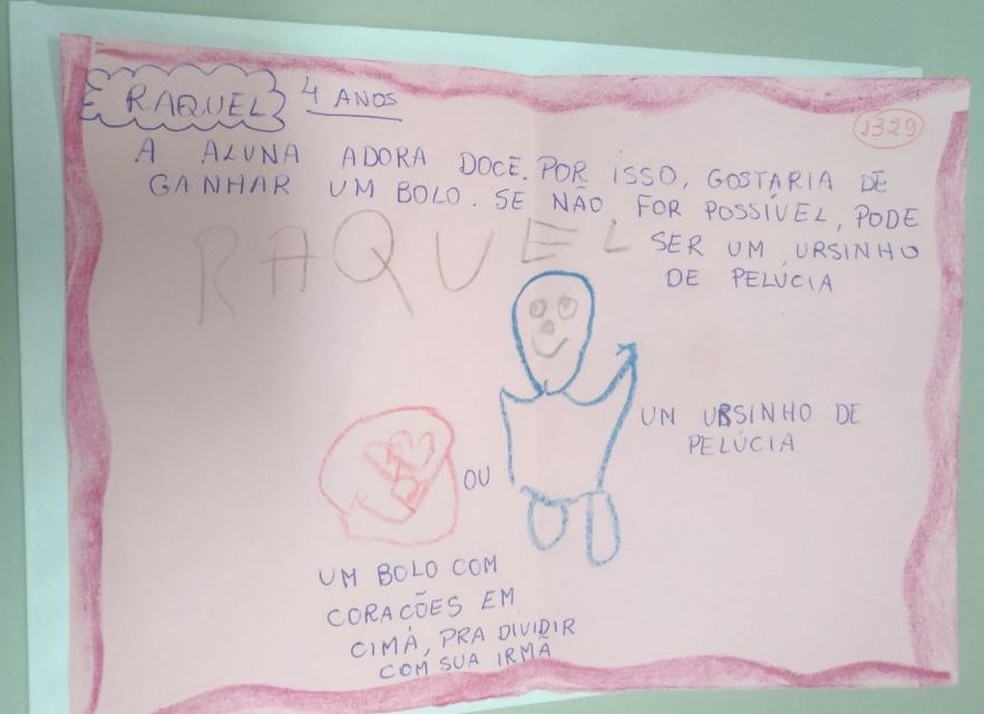 RAQUEL 4 ANOS
1329
A ALUNA ADORA DOCE. POR ISSO, GOSTARIA DE
GANHAR UM BOLO. SE NÃO FOR POSSÍVEL, PODE
SER UM URSINHO
DE PELÚCIA
RAQUEL
UM URSINHO DE
PELÚCIA
OU
UM BOLO COM
CORACÕES EM
CIMA, PRA DIVIDIR
COM SUA IRMÃ